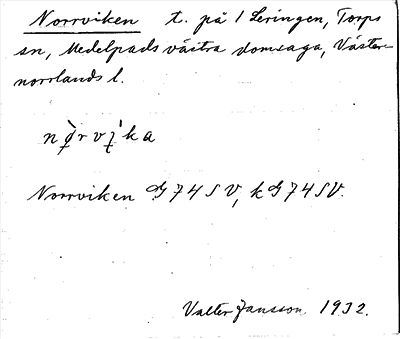 Norrviken t. på 1 Leringen, Torps
sn, Medelpads västra domsaga, Väster-
norrlands l.
Norrviken G74SV, kG74SV.
Valter Jansson 1932.